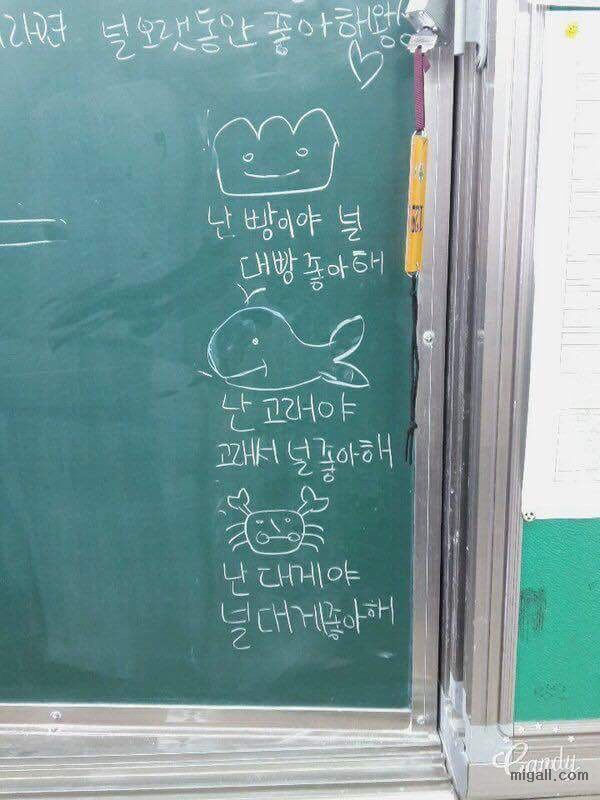 널 오랫동안 좋아해왕
난 빵이야 널
대빵 좋아해
난 고래야
고래서 널 좋아해
난 대게야
널 대게좋아해
Candy
migall.com